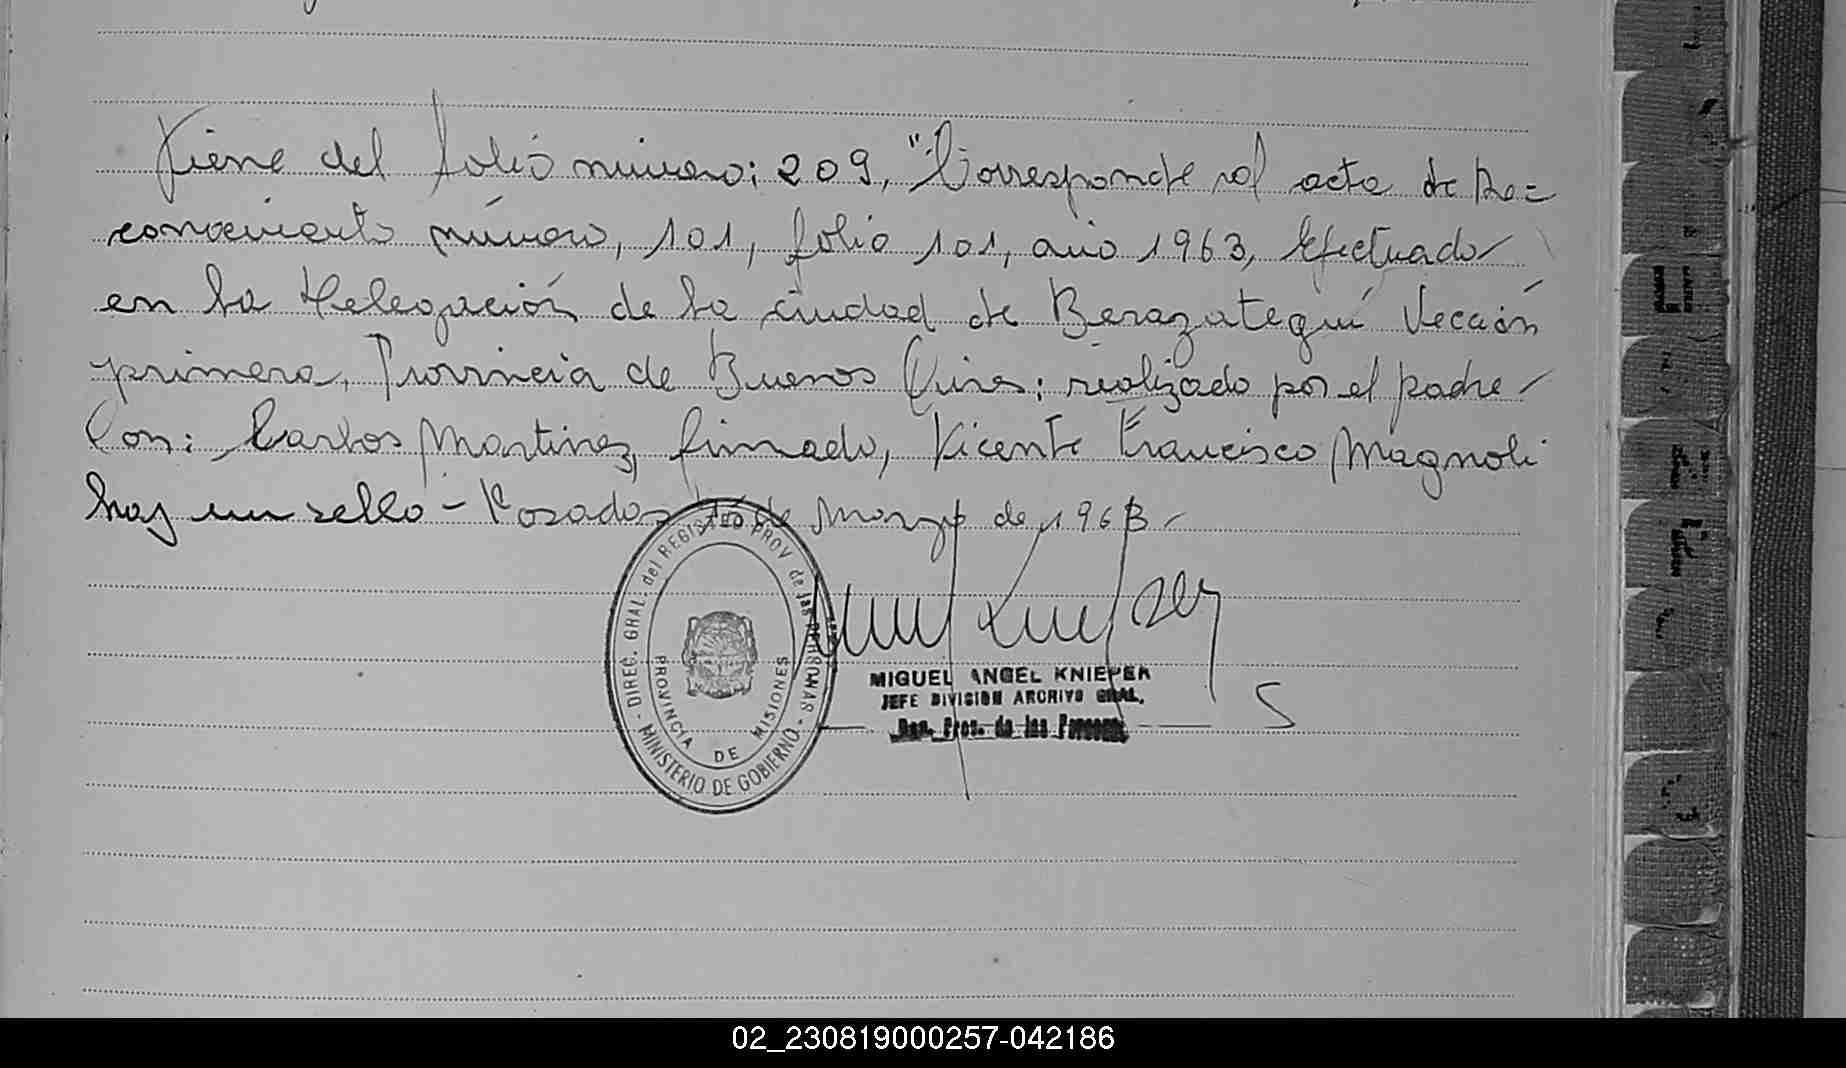 Viene del folio número: 209, "Corresponde al acta de Re=
conocimiento número, 101, folio 101, año 1963, Efectuado
en la Delegación de la ciudad de Berazategui Sección
primera, Provincia de Buenos Aires: realizado por el padre
Con: Carlos Martinez, firmado, Vicente Francisco Magnoli
hay un sello - Posadas de Marzo de 1963 -
DIREC. GRAL. del REGISTRO PROV de las PERSONAS
- MINISTERIO DE GOBIERNO -
PROVINCIA DE MISIONES
MIGUEL ANGEL KNIEPER
JEFE DIVISION ARCHIVO GRAL.
Reg. Prov. de las Personas
S
02_230819000257-042186